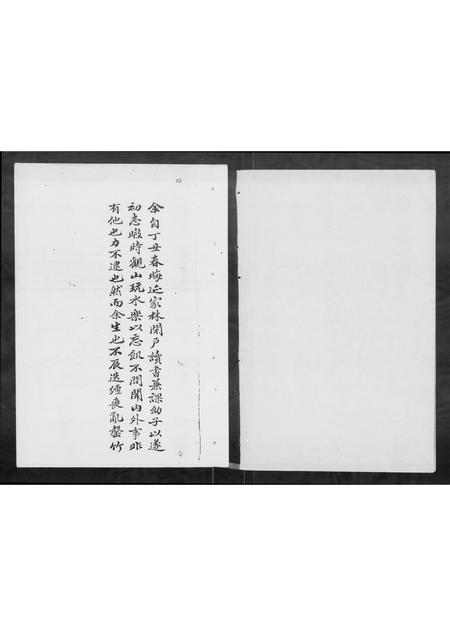 余自丁丑春晦迹家林閉戶讀書兼課幼子以遂
初志暇時觀山玩水樂以忘飢不問閫內外事非
有他也力不逮也然而余生也不辰迭經喪亂罄竹